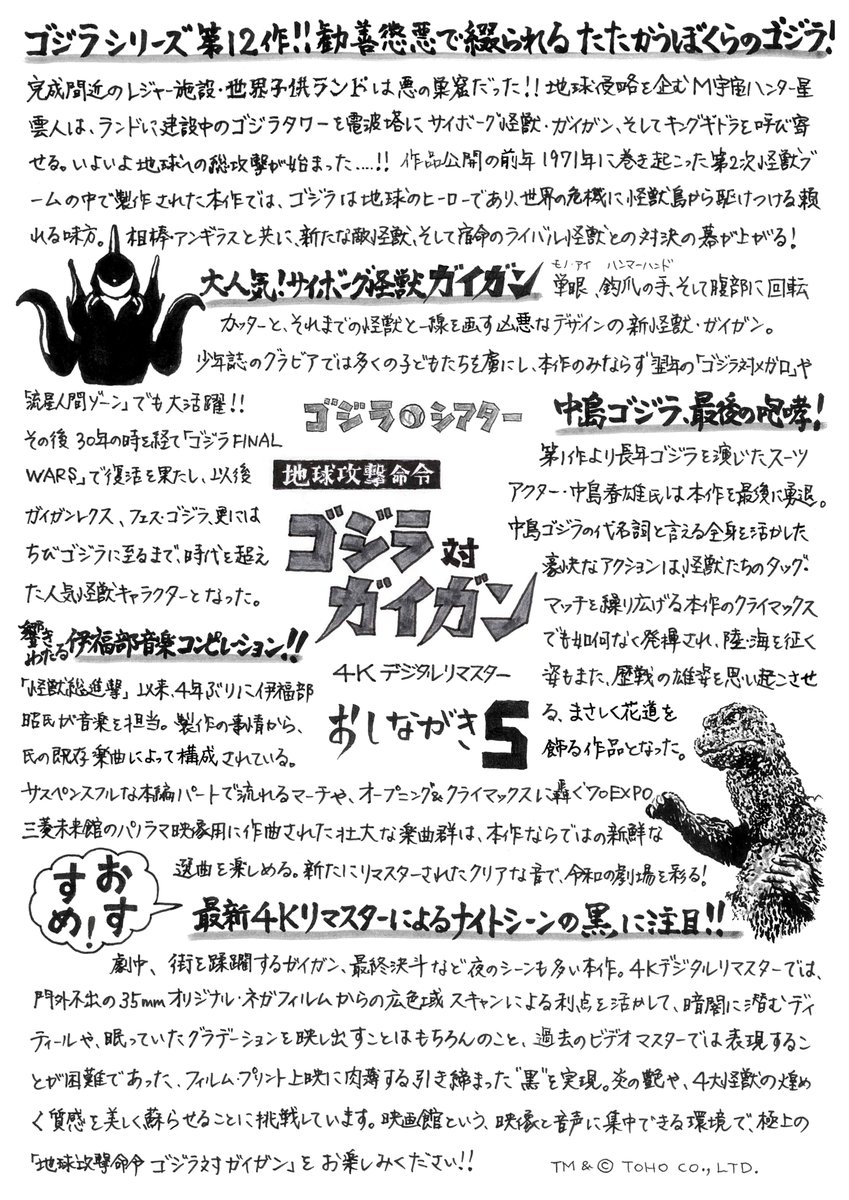 ゴジラシリーズ第12作!!勧善懲悪で綴られるたたかうぼくらのゴジラ!
完成間近のレジャー施設・世界子供ランドは悪の巣窟だった!!地球侵略を企むM宇宙ハンター星
雲人は、ランドに建設中のゴジラタワーを電波塔にサイボーグ怪獣・ガイガン、そしてキングギドラを呼び寄
せる。いよいよ地球への総攻撃が始まった....!!作品公開の前年1971年に巻き起こった第2次怪獣ブ
ームの中で製作された本作では、ゴジラは地球のヒーローであり、世界の危機に怪獣島から駆けつける頼
れる味方。相棒・アンギラスと共に、新たな敵怪獣、そして宿命のライバル怪獣との対決の幕が上がる!
モノ・アイ ハンマーハンド
大人気!サイボーグ怪獣ガイガン 単眼、鈎爪の手、そして腹部に回転
カッターと、それまでの怪獣と一線を画す凶悪なデザインの新怪獣・ガイガン。
少年誌のグラビアでは多くの子どもたちを虜にし、本作のみならず翌年の「ゴジラ対メガロ」や
「流星人間ゾーン」でも大活躍!!
その後30年の時を経て「ゴジラFINAL
WARS」で復活を果たし、以後
ガイガンレクス、フェス・ゴジラ、更には
ちびゴジラに至るまで、時代を超え
た人気怪獣キャラクターとなった。
ゴジラ・シアター
地球攻撃命令
ゴジラ対
ガイガン
4Kデジタルリマスター
おしながき5
中島ゴジラ、最後の咆哮!
第1作より長年ゴジラを演じたスーツ
アクター・中島春雄氏は本作を最後に勇退。
中島ゴジラの代名詞と言える全身を活かした
豪快なアクションは、怪獣たちのタッグ・
マッチを繰り広げる本作のクライマックス
でも如何なく発揮され、陸・海を征く
姿もまた、歴戦の雄姿を思い起こさせ
る、まさしく花道を
飾る作品となった。
響きわたる伊福部音楽コンピレーション!!
「怪獣総進撃」以来、4年ぶりに伊福部
昭氏が音楽を担当。製作の事情から、
氏の既存楽曲によって構成されている。
サスペンスフルな本編パートで流れるマーチや、オープニング&クライマックスに轟く70EXPO
三菱未来館のパノラマ映像用に作曲された壮大な楽曲群は、本作ならではの新鮮な
選曲を楽しめる。新たにリマスターされたクリアな音で、令和の劇場を彩る!
おすすめ!
最新4Kリマスターによるナイトシーンの“黒”に注目!!
劇中、街を蹂躙するガイガン、最終決斗など夜のシーンも多い本作。4Kデジタルリマスターでは、
門外不出の35mmオリジナル・ネガフィルムからの広色域スキャンによる利点を活かして、暗闇に潜むディ
ティールや、眠っていたグラデーションを映し出すことはもちろんのこと、過去のビデオマスターでは表現するこ
とが困難であった、フィルム・プリント上映に肉薄する引き締まった“黒”を実現。炎の艶や、4大怪獣の煌め
く質感を美しく蘇らせることに挑戦しています。映画館という、映像と音声に集中できる環境で、極上の
「地球攻撃命令 ゴジラ対ガイガン」をお楽しみください!!
TM & © TOHO CO., LTD.